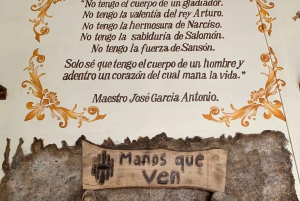 "No tengo el cuerpo de un gladiador.
No tengo la valentía del rey Arturo.
No tengo la hermosura de Narciso.
No tengo la sabiduría de Salomón.
No tengo la fuerza de Sansón.
Solo sé que tengo el cuerpo de un hombre y
adentro un corazón del cual mana la vida."
Maestro José García Antonio.
Manos que
Ven